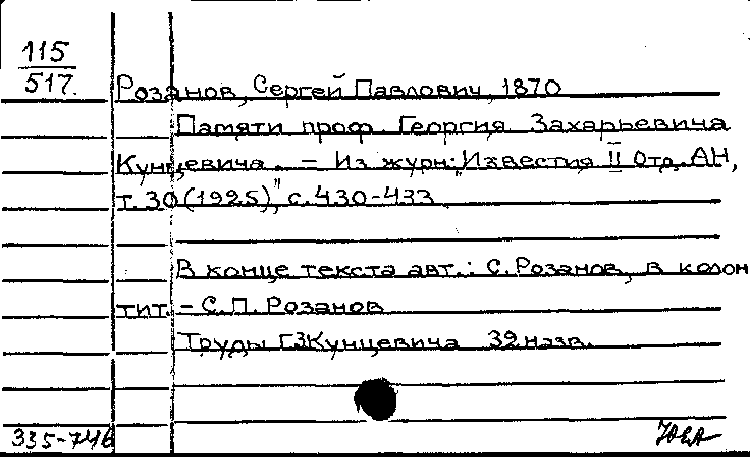 115
517.
Розанов, Сергей Павлович, 1870
Памяти проф. Георгия Захарьевича
Кунцевича. – Из журн: "Известия II Отд. АН,
т. 30 (1925)", с. 430-433
В конце текста авт.: С. Розанов, в колон
тит. – С.П. Розанов
Труды Г.З Кунцевича 32 назв.
335-746